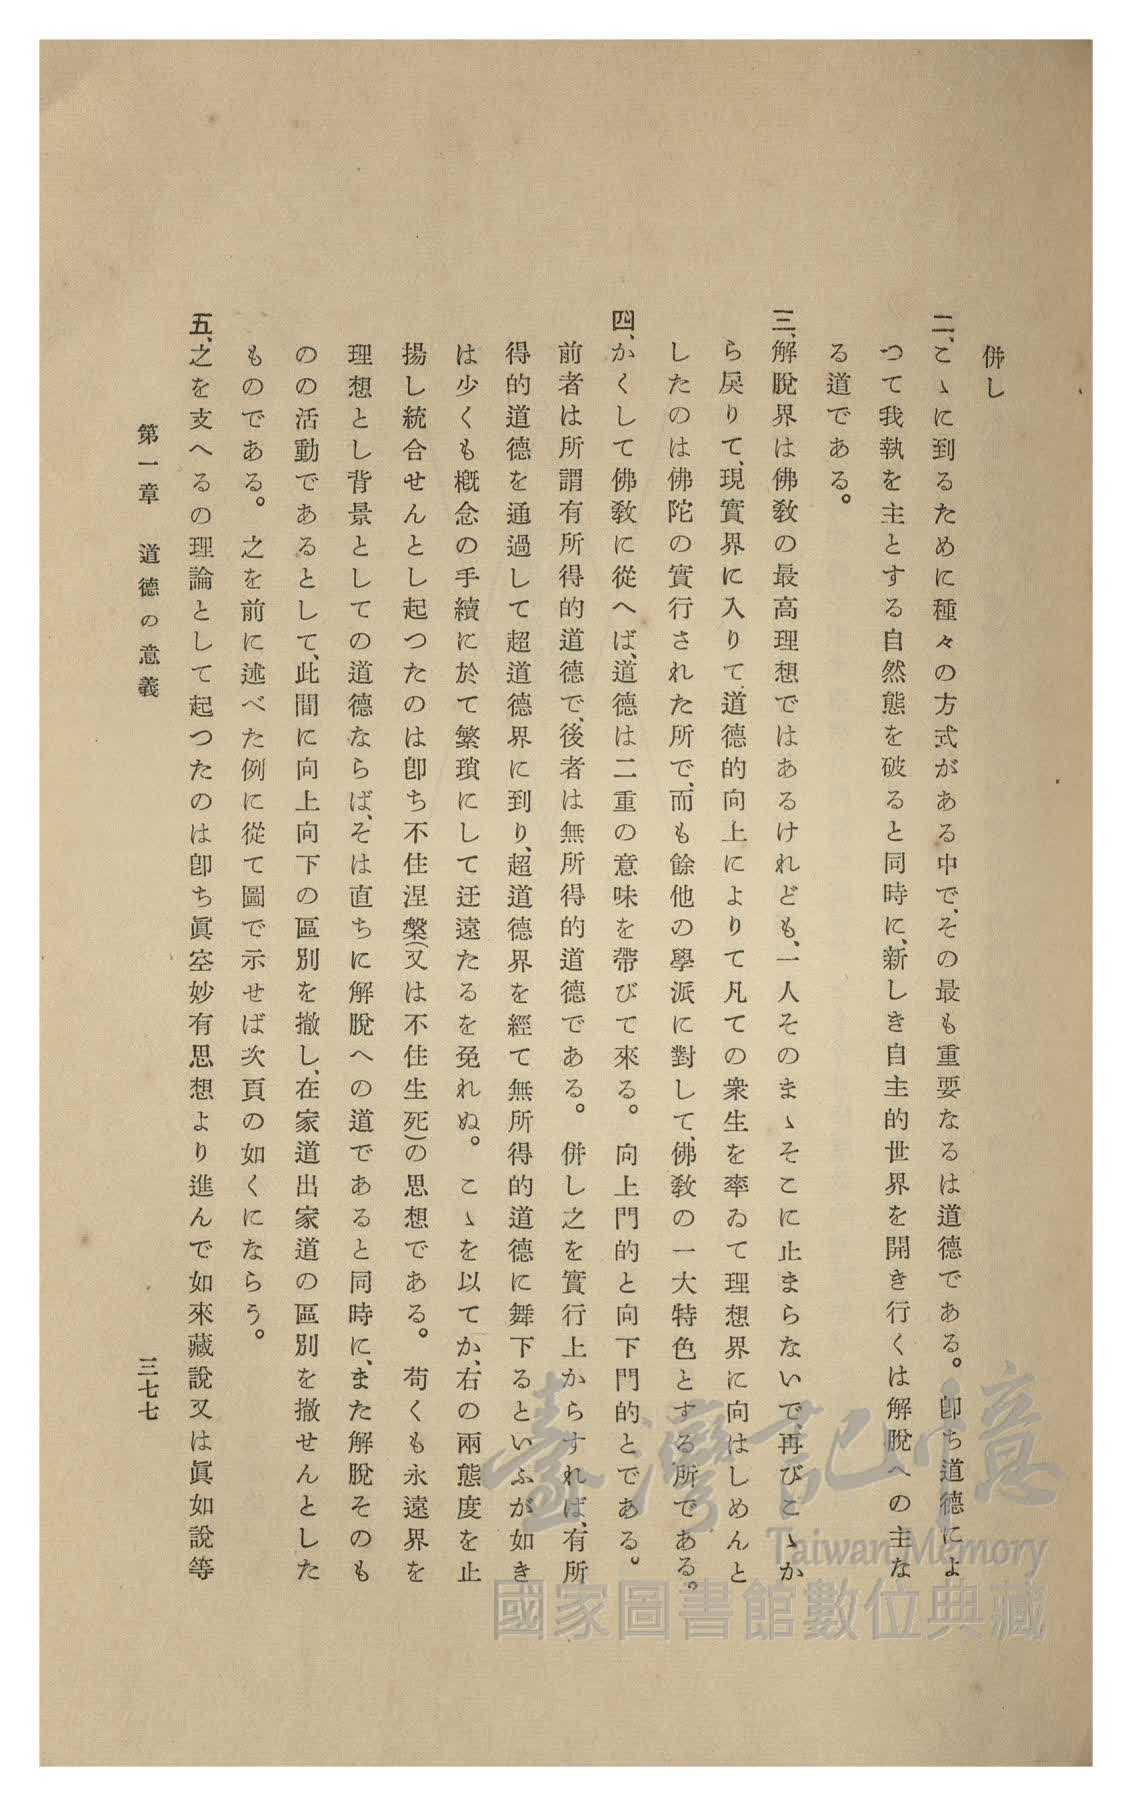 併し
二、こゝに到るために種々の方式がある中で、その最も重要なるは道德である。卽ち道德によ
つて我執を主とする自然態を破ると同時に、新しき自主的世界を開き行くは解脫への主な
る道である。
三、解脫界は佛敎の最高理想ではあるけれども、一人そのまゝそこに止まらないで、再びこゝか
ら戾りて、現實界に入りて、道德的向上によりて凡ての衆生を率ゐて理想界に向はしめんと
したのは佛陀の實行された所で、而も餘他の學派に對して、佛敎の一大特色とする所である。
四、かくして佛敎に從へば、道德は二重の意味を帶びて來る。向上門的と向下門的とである。
前者は所謂有所得的道德で、後者は無所得的道德である。併し之を實行上からすれば、有所
得的道德を通過して超道德界に到り、超道德界を經て無所得的道德に舞下るといふが如き
は少くも槪念の手續に於て繁瑣にして迂遠たるを免れぬ。こゝを以てか、右の兩態度を止
揚し統合せんとし起つたのは卽ち不住涅槃(又は不住生死)の思想である。苟くも永遠界を
理想とし背景としての道德ならば、そは直ちに解脫への道であると同時に、また解脫そのも
のの活動であるとして、此間に向上向下の區別を撤し、在家道出家道の區別を撤せんとした
ものである。之を前に述べた例に從て圖で示せば次頁の如くにならう。
五、之を支へるの理論として起つたのは卽ち眞空妙有思想より進んで如來藏說又は眞如說等
第一章 道德の意義 三七七
臺灣記憶
Taiwan Memory
國家圖書館數位典藏